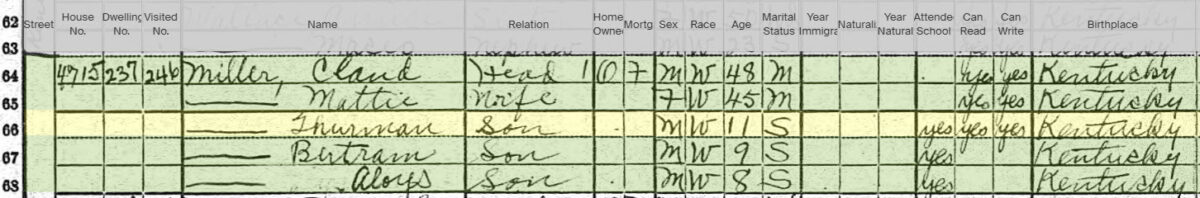 Street House No. Dwelling No. Visited No. Name Relation Home Owne Mortg Sex Race Age Marital Status Year Immigra Naturali Year Natural Attende School Can Read Can Write Birthplace
62
63
64 4715 237 246 Miller, Claud Head 1 O F M W 48 M yes yes Kentucky
65 Mattie Wife F W 45 M yes yes Kentucky
66 Thurman Son M W 11 S yes yes yes Kentucky
67 Bertram Son M W 9 S yes Kentucky
68 Aloys Son M W 8 S yes Kentucky